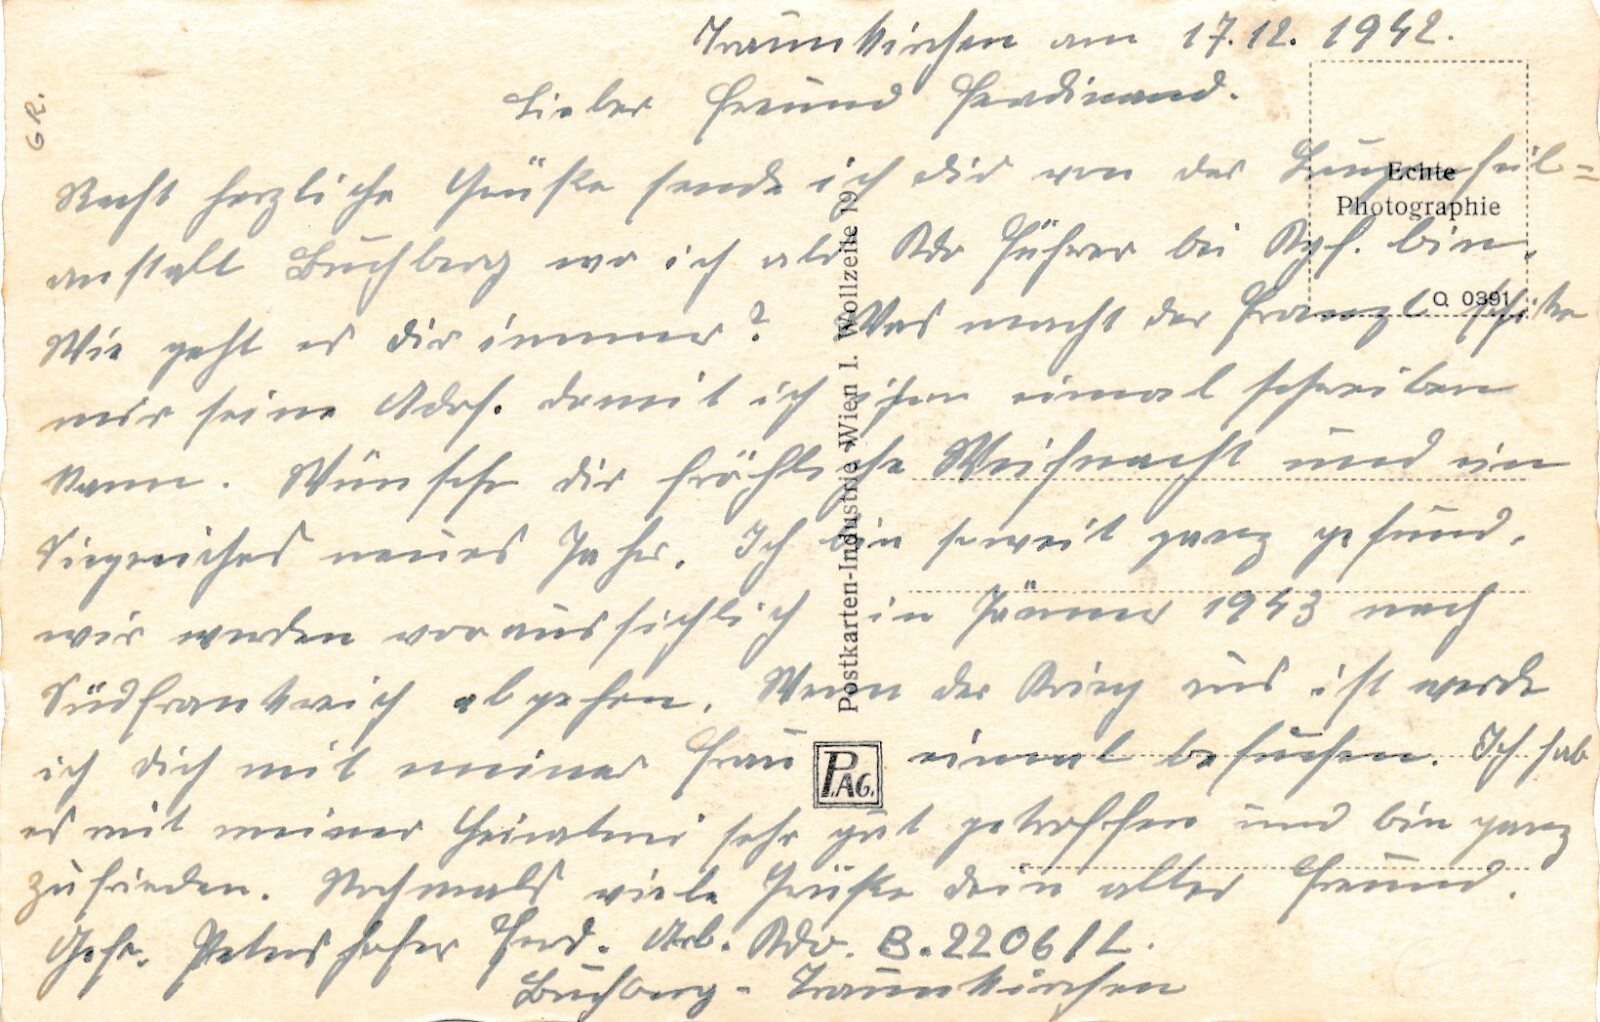 Traunkirchen am 17.12.1942.
Lieber Freund Ferdinand.
GR.
Recht herzliche Grüße sende ich dir von der Lungenheil=
anstalt Buchberg wo ich als Kdo Führer bei Kgf. bin.
Wie geht es dir immer? Was macht der Franzl schike
mir seine Adrs. damit ich ihm eimal schreiben
kann. Wünsche dir fröhliche Weihnacht und ein
Siegreiches neues Jahr. Ich bin soweit ganz gesund.
wir werden voraussichlich in Jänner 1943 nach
Südfrankreich abgehen. Wenn der Krieg aus ist werde
ich dich mit meiner Frau eimal besuchen. Ich hab
es mit meiner Heirat sehr gut getroffen und bin ganz
zufrieden. Nochmals viele Grüße dein alter Freund.
Gefr. Petershofer Ferd. Arb. Kdo. B.2206/L.
Buchberg - Traunkirchen
Echte
Photographie
O 0391
Postkarten-Industrie Wien I. Wollzeile 19
P.AG.